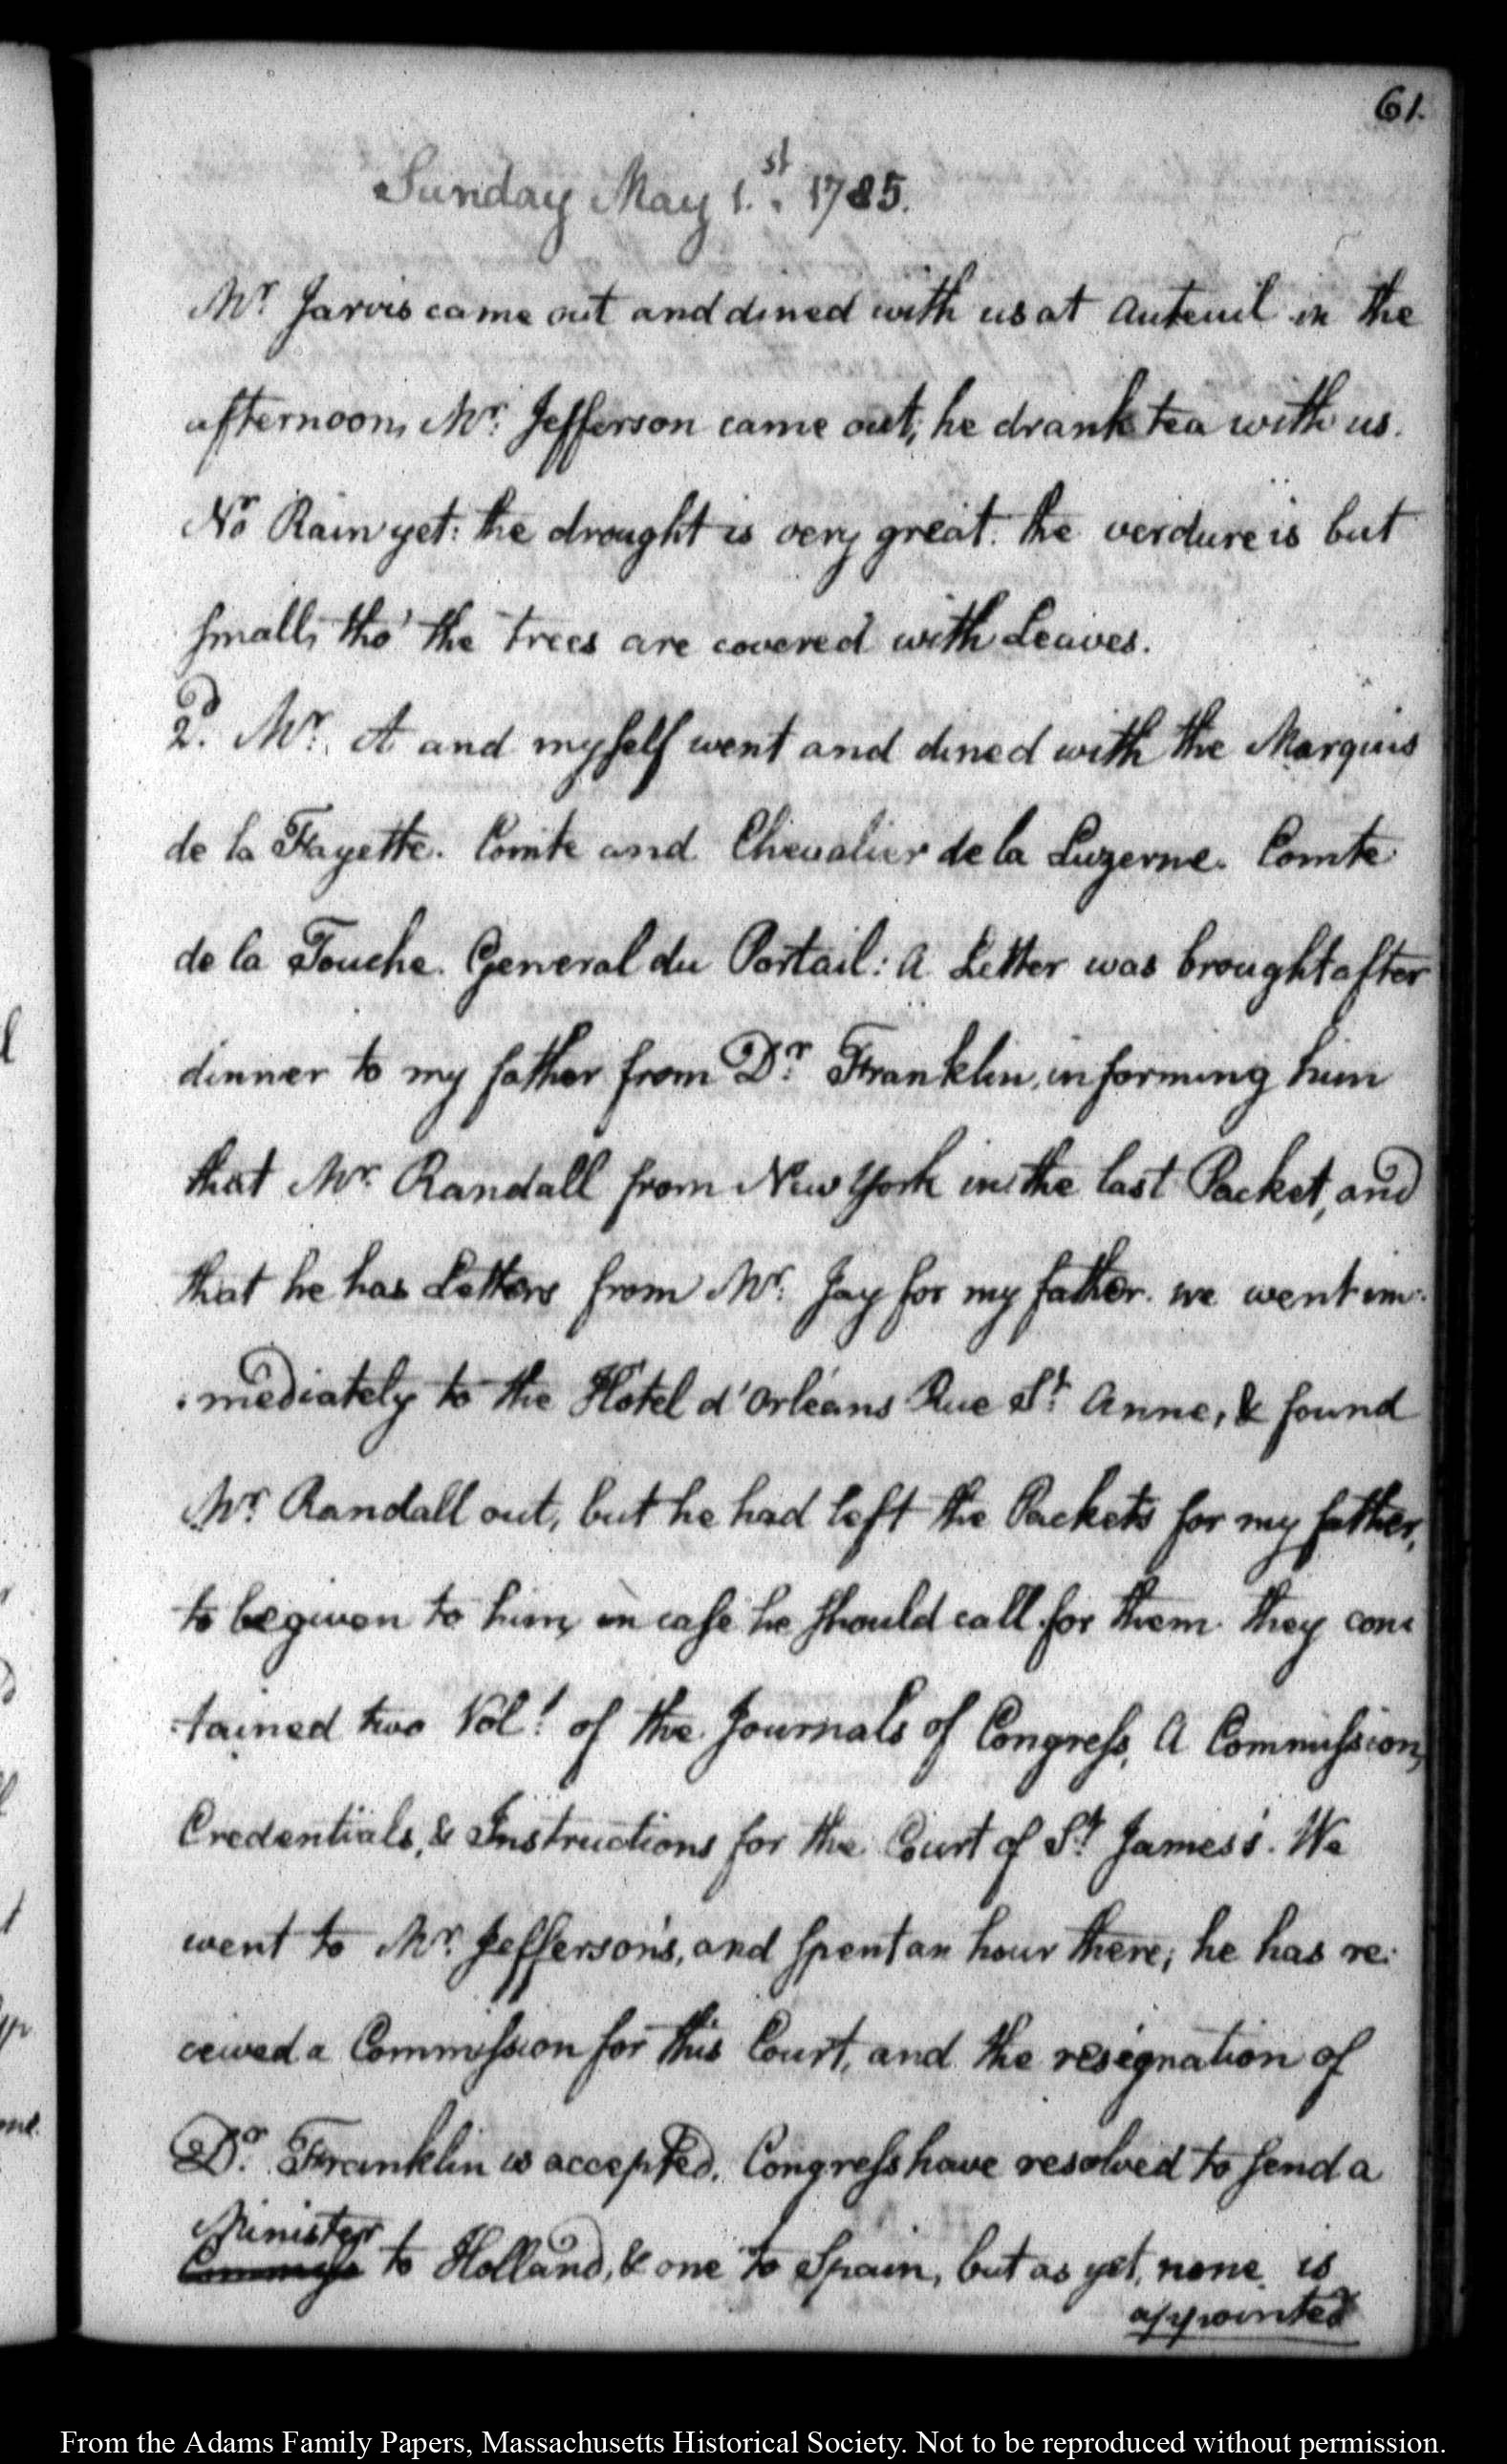 61.
Sunday May 1.st 1785.
Mr. Jarvis came out and dined with us at Auteuil in the
afternoon, Mr. Jefferson came out; he drank tea with us.
No Rain yet: the drought is very great. the verdure is but
small, tho' the trees are covered with Leaves.
2d. Mr. A and myself went and dined with the Marquis
de la Fayette. Comte and Chevalier de la Luzerne. Comte
de la Touche. General du Portail: A Letter was brought after
dinner to my father from Dr. Franklin, informing him
that Mr. Randall from New York in the last Packet, and
that he has Letters from Mr. Jay for my father. we went im-
:mediately to the Hôtel d'Orléans Rue St. Anne, & found
Mr. Randall out, but he had left the Packets for my father,
to be given to him, in case he should call for them. they con:
:tained two Vols. of the Journals of Congress, A Commission,
Credentials, & Instructions for the Court of St. James's. We
went to Mr. Jefferson's, and spent an hour there; he has re:
ceived a Commission for this Court, and the resignation of
Dr. Franklin is accepted. Congress have resolved to send a
Minister
to Holland, & one to Spain, but as yet, none is
appointed
From the Adams Family Papers, Massachusetts Historical Society. Not to be reproduced without permission.